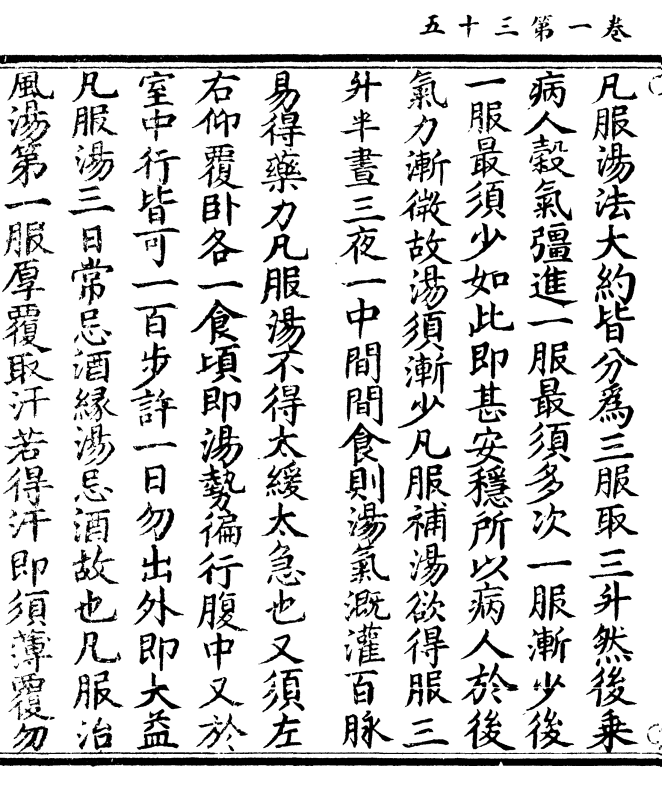 卷一第三十五
凡服湯法大約皆分為三服取三升然後乗
病人穀氣彊進一服最須多次一服漸少後
一服最須少如此即甚安穩所以病人於後
氣力漸微故湯須漸少凡服補湯欲得服三
升半晝三夜一中間間食則湯氣溉灌百脉
易得藥力凡服湯不得太緩太急也又須左
右仰覆卧各一食頃即湯勢徧行腹中又於
室中行皆可一百步許一日勿出外即大益
凡服湯三日常忌酒緣湯忌酒故也凡服治
風湯第一服厚覆取汗若得汗即須薄覆勿